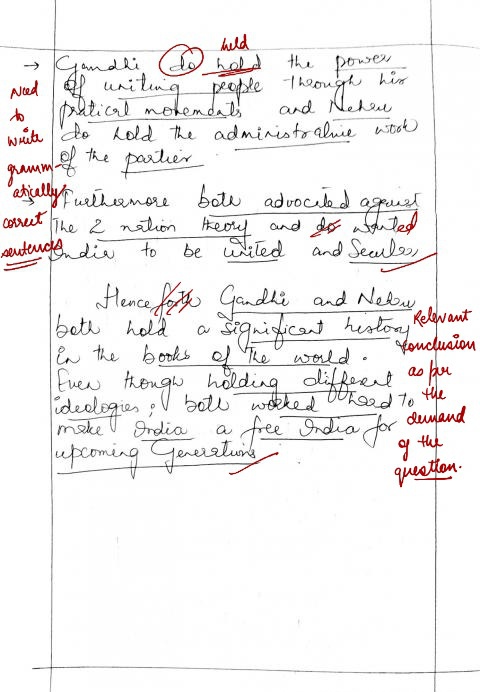 held
→ Gandhi do hold the power
of uniting people through his
pratical movements and Nehru
do hold the administrative work
of the parties.
Need
to
write
gramm-
atically
correct
sentences
→ Furthermore both advocated against
the 2 nation theory and do wanted
India to be united and Secular
Henceforth Gandhi and Nehru
both hold a significant history
in the books of the world.
Even though holding different
ideologies; both worked hard to
make India a free India for
upcoming Generations
Relevant
conclusion
as per
the
demand
of the
question.